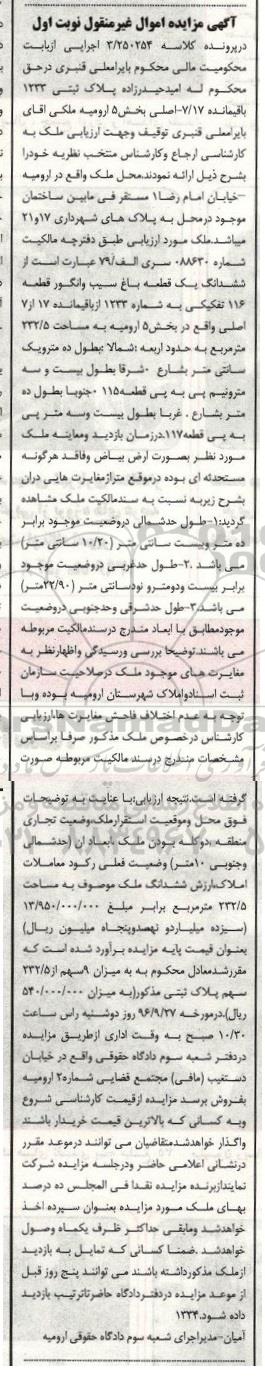 آگهی مزایده اموال غیرمنقول نوبت اول
درپرونده کلاسه ۳/۲۵۰۲۵۴ اجرایی ازبابت
محکومیت مالی محکوم بایرامعلی قنبری درحق
محکوم له امیدحیدرزاده پلاک ثبتی ۱۲۳۳
باقیمانده ۷/۱۷-اصلی بخش۵ ارومیه ملکی اقای
بایرامعلی قنبری توقیف وجهت ارزیابی ملک به
کارشناسی ارجاع وکارشناس منتخب نظریه خودرا
بشرح ذیل ارائه نمودند.محل ملک واقع در ارومیه
-خیابان امام رضا۱ مستقر فی مابین ساختمان
موجود درمحل به پلاک های شهرداری ۱۷و۲۱
میباشد.ملک مورد ارزیابی طبق دفترچه مالکیت
شماره ۰۸۸۶۳۰ سری الف/۷۹ عبارت است از
ششدانگ یک قطعه باغ سیب وانگور قطعه
۱۱۶ تفکیکی به شماره ۱۲۳۳ ازباقیمانده ۱۷ از۷
اصلی واقع در بخش۵ ارومیه به مساحت ۲۳۲/۵
مترمربع به حدود اربعه :شمالا :بطول ده مترویک
سانتی متر بشارع ۰شرقا بطول بیست و سه
مترونیم پی به پی قطعه۱۱۵ ۰جنوبا بطول ده
متر بشارع . غربا بطول بیست وسه متر پی
به پی قطعه۱۱۷.درزمان بازدید ومعاینه ملک
مورد نظر بصورت ارض بیاض وفاقد هرگونه
مستحدثه ای بوده درموقع متراژمغایرت هایی دران
بشرح زیربه نسبت به سندمالکیت ملک مشاهده
گردید:۱-طول حدشمالی دروضعیت موجود برابر
ده متر وبیست سانتی متر (۱۰/۲۰ سانتی متر)
می باشد .۲-طول حدغربی دروضعیت موجود
برابر بیست ودومترو نودسانتی متر (۲۲/۹۰متر)
می باشد.۳-طول حدشرقی وحدجنوبی دروضعیت
موجودمطابق با ابعاد مندرج درسندمالکیت مربوطه
می باشند.توضیحا بررسی ورسیدگی واظهارنظر به
مغایرت های موجود ملک درصلاحیت سازمان
ثبت اسنادواملاک شهرستان ارومیه بوده وبا
توجه به عدم اختلاف فاحش مغایرت ها،ارزیابی
کارشناس درخصوص ملک مذکور صرفا براساس
مشخصات مندرج درسند مالکیت مربوطه صورت
گرفته است.نتیجه ارزیابی:با عنایت به توضیحات
فوق محل وموقعیت استقرارملک،وضعیت تجاری
منطقه ،دوکله بودن ملک ،ابعاد ان (حدشمالی
وجنوبی ۱۰متر) وضعیت فعلی رکود معاملات
املاک،ارزش ششدانگ ملک موصوف به مساحت
۲۳۲/۵ مترمربع برابر مبلغ ۱۳/۹۵۰/۰۰۰/۰۰۰
(سیزده میلیاردو نهصدوپنجاه میلیون ریال)
بعنوان قیمت پایه مزایده برآورد شده است که
مقررشدمعادل محکوم به به میزان ۹سهم از۲۳۲/۵
سهم پلاک ثبتی مذکور(به میزان ۵۴۰/۰۰۰/۰۰۰
ریال).درمورخه ۹۶/۹/۲۷ روز دوشنبه راس ساعت
۱۰/۳۰ صبح به وقت اداری ازطریق مزایده
دردفتر شعبه سوم دادگاه حقوقی واقع در خیابان
دستغیب (مافی) مجتمع قضایی شماره۲ ارومیه
بفروش برسد مزایده ازقیمت کارشناسی شروع
وبه کسانی که بالاترین قیمت خریدار باشند
واگذار خواهدشد.متقاضیان می توانند درموعد مقرر
درنشانی اعلامی حاضر ودرجلسه مزایده شرکت
نمایند.برنده مزایده نقدا فی المجلس ده درصد
بهای ملک مورد مزایده بعنوان سپرده اخذ
خواهدشد ومابقی حداکثر ظرف یکماه وصول
خواهدشد .ضمنا کسانی که تمایل به بازدید
ازملک مذکورداشته باشند می توانند پنج روز قبل
از موعد مزایده دردفتردادگاه حاضرتاترتیب بازدید
داده شود.۱۳۳۴
آمیان-مدیراجرای شعبه سوم دادگاه حقوقی ارومیه